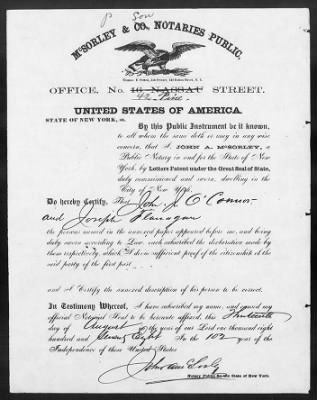 P Son
McSORLEY & CO., NOTARIES PUBLIC.
OFFICE, No. 46 NASSAU STREET.
42 Pine
UNITED STATES OF AMERICA.
STATE OF NEW YORK, ss.
By this Public Instrument be it known,
to all whom the same doth or may in any wise
concern, that I, JOHN A. McSORLEY, a
Public Notary in and for the State of New
York, by Letters Patent under the Great Seal of State,
duly commissioned and sworn, dwelling in the
City of New York,
Do hereby Certify, That John J. O'Connor
and Joseph Flanagan
the persons named in the annexed paper appeared before me, and being
duly sworn according to Law, each subscribed the declaration made by
them respectively, which I deem sufficient proof of the citizenship of the
said party of the first part
and I Certify the annexed description of his person to be correct.
In Testimony Whereof, I have subscribed my name, and caused my
official Notarial Seal to be hereunto affixed, this Thirteenth
day of August in the year of our Lord one thousand eight
hundred and Seventy Eight In the 102 year of the
Independence of these United States
Notary Public for the State of New York.